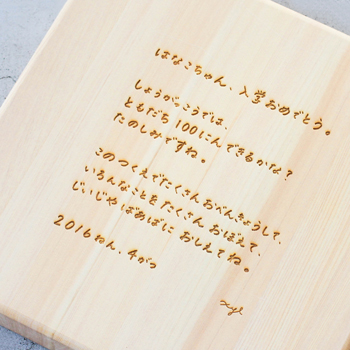 はなこちゃん、入学おめでとう。
しょうがっこうでは、
ともだち100にんできるかな？
たのしみですね。
このつくえでたくさんおべんきょうして、
いろんなことをたくさんおぼえて、
じぃじやばあばにおしえてね。
2016ねん、4がつ